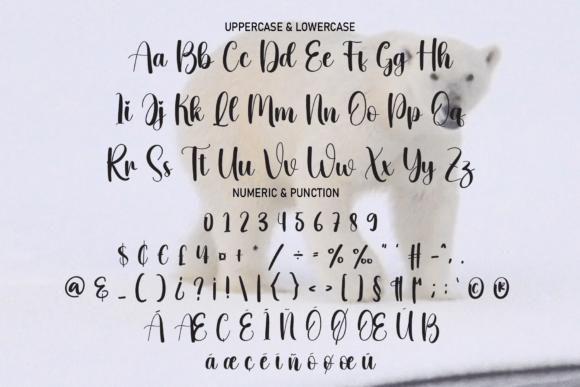 UPPERCASE & LOWERCASE
Aa Bb Cc Dd Ee Ff Gg Hh
Ii Jj Kk Ll Mm Nn Oo Pp Qq
Rr Ss Tt Uu Vv Ww Xx Yy Zz
NUMERIC & PUNCTION
0 1 2 3 4 5 6 7 8 9
$ ₵ € £ ¥ ¤ + * / ÷ = % ‰ " ' # - ^ , .
@ & _ ( ) ¿ ? ¡ ! \ | { } < > [ ] § ¶ ; : ' © ®
Á Æ Ç É Í Ñ Ó Ø Œ Ú ß
á æ ç é í ñ ó ø œ ú